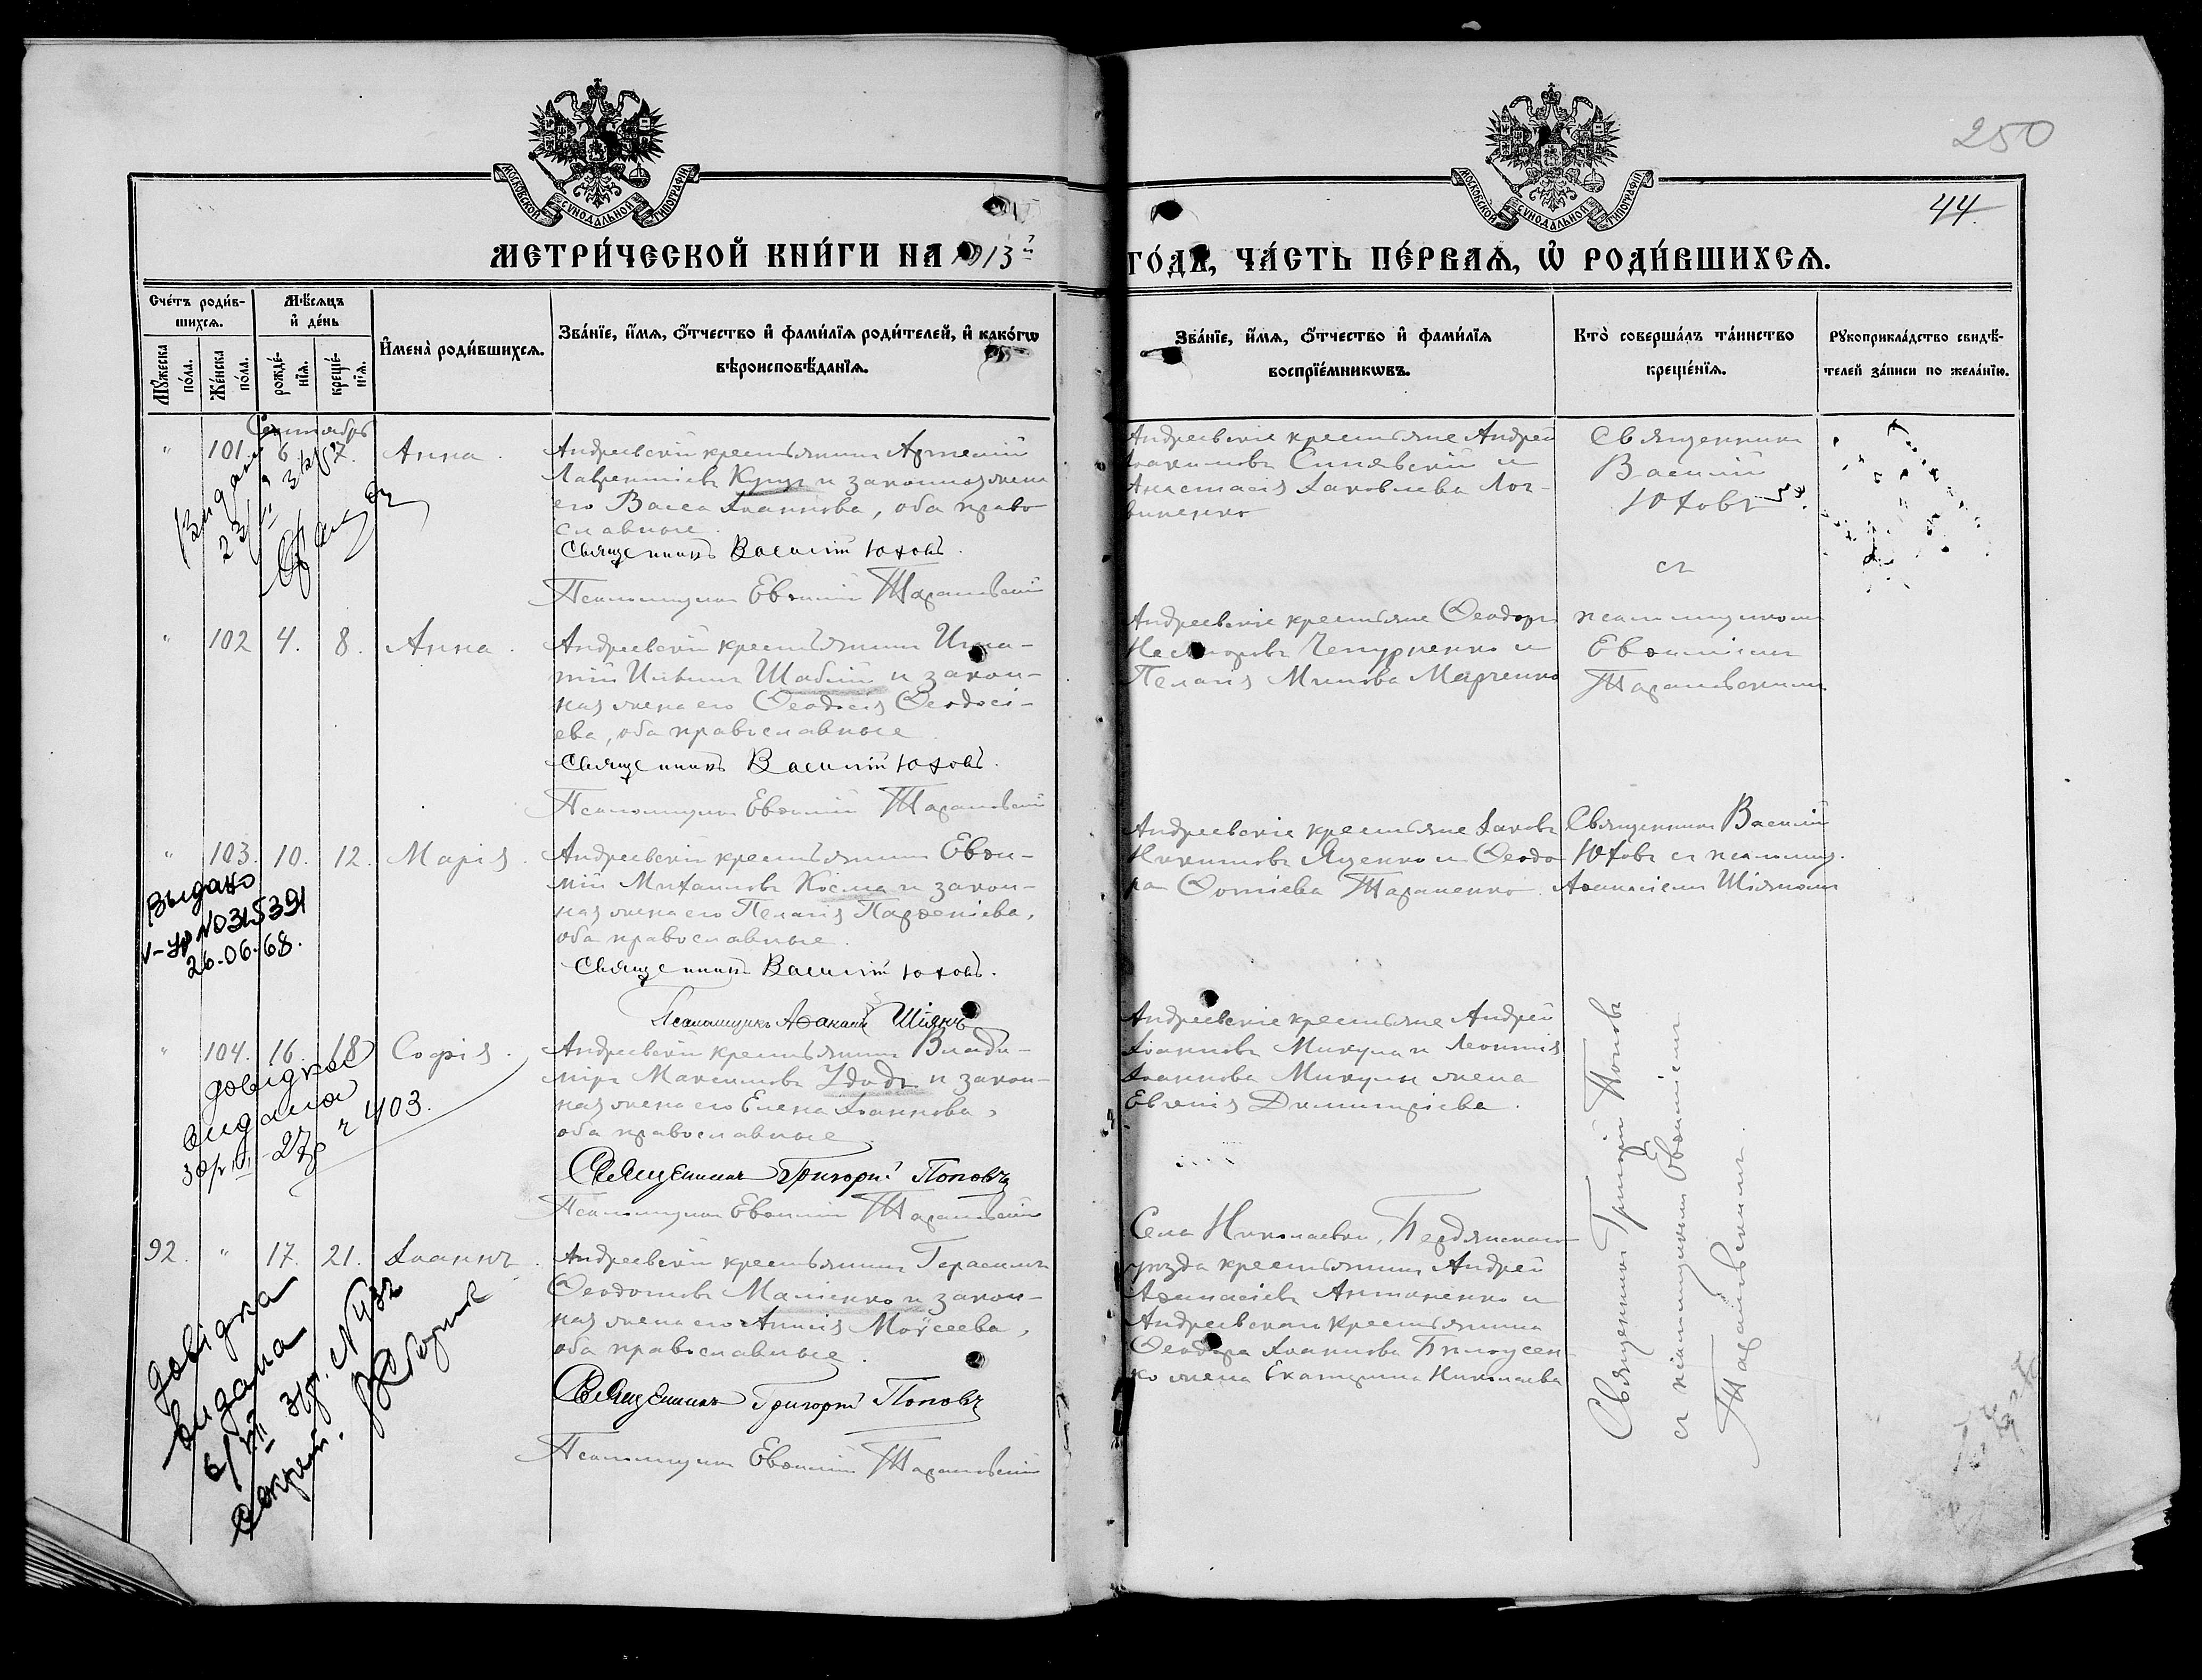 МОСКОВСКОЙ СѴНОДАЛЬНОЙ ТИПОГРАФІИ
МОСКОВСКОЙ СѴНОДАЛЬНОЙ ТИПОГРАФІИ
250
44.
МЕТРИ́ЧЕСКОЙ КНИ́ГИ НА 1913
ГО́ДЪ, ЧА́СТЬ ПЕ́РВАѦ, Ѡ҆ РОДИ́ВШИХСѦ.
Сче́тъ роди́в-
шихсѧ.
Мѣ́сѧцъ
и҆ де́нь
Мꙋ́жеска
по́ла.
Же́нска
по́ла.
рожде́-
нїѧ.
креще́-
нїѧ.
И҆мена̀ роди́вшихсѧ.
Зва́нїе, и҆́мѧ, ѻ҆́тчество и҆ фами́лїѧ роди́телей, и҆ како́гѡ
вѣроисповѣ́данїѧ.
Зва́нїе, и҆́мѧ, ѻ҆́тчество и҆ фами́лїѧ
воспрїе́мникѡвъ.
Кто̀ соверша́лъ та́инство
креще́нїѧ.
Рꙋкоприкла́дство свидѣ́-
телей за́писи по жела́нїю.
Сентябрь
" 101. 6. 7. Анна.
Андреевскій крестьянинъ Артемій
Лаврентіевъ и законная жена
его Васса Іоаннова, оба право
славные.
Священникъ Василій Юховъ.
Псаломщикъ Евѳимій Тарановскій
Андреевскіе крестьяне Андрей
Іоакимовъ Синявскій и
Анастасія Іаковлева Лог-
виненко
Священникъ
Василій
Юховъ
съ
псаломщикомъ
Евѳиміемъ
Тарановскимъ
" 102 4. 8. Анна.
Андреевскій крестьянинъ Игна-
тій Шаблій и закон-
ная жена его Ѳеодосія Ѳеодосі-
ева, оба православные
Священникъ Василій Юховъ.
Псаломщикъ Евѳимій Тарановскій
Андреевскіе крестьяне Ѳеодоръ
Несторовъ Чепурненко и
Пелагія Минова Марченко
" 103. 10. 12. Марія.
Андреевскій крестьянинъ Евѳи-
мій Михаиловъ и закон-
ная жена его Пелагія Парѳеніева,
оба православные.
Священникъ Василій Юховъ.
Псаломщикъ Аѳанасій Шіянъ
Андреевскіе крестьяне Іаковъ
Никитовъ Яценко и Ѳеодо
ра Фотіева Тараненко.
Священникъ Василій
Юховъ съ псаломщ.
Аѳанасіемъ Шіяномъ
Выдано
№ 0315391
26.06.68.
" 104. 16. 18 Софія.
Андреевскій крестьянинъ Влади-
міръ Максимовъ Удодъ и закон-
ная жена его Елена Іоаннова,
оба православные
Священникъ Григорій Поповъ
Псаломщикъ Евѳимій Тарановскій
Андреевскіе крестьяне Андрей
Іоанновъ Микула и Леонтія
Іоаннова Микулы жена
Евгенія Димитріева.
видана
403.
92. " 17. 21. Іоаннъ.
Андреевскій крестьянинъ Герасимъ
Ѳеодотовъ и закон-
ная жена его Анисія Моѵсеева,
оба православные.
Священникъ Григорій Поповъ
Псаломщикъ Евѳимій Тарановскій
Села Николаевки, Бердянскаго
уѣзда крестьянинъ Андрей
Аѳанасіевъ Антоненко и
Андреевскаго крестьянина
Ѳеодора Іоаннова Билоусен-
ко жена Екатерина Николаева
Священникъ Григорій Поповъ
съ псаломщикомъ Евѳиміемъ
Тарановскимъ.
довідка
видана